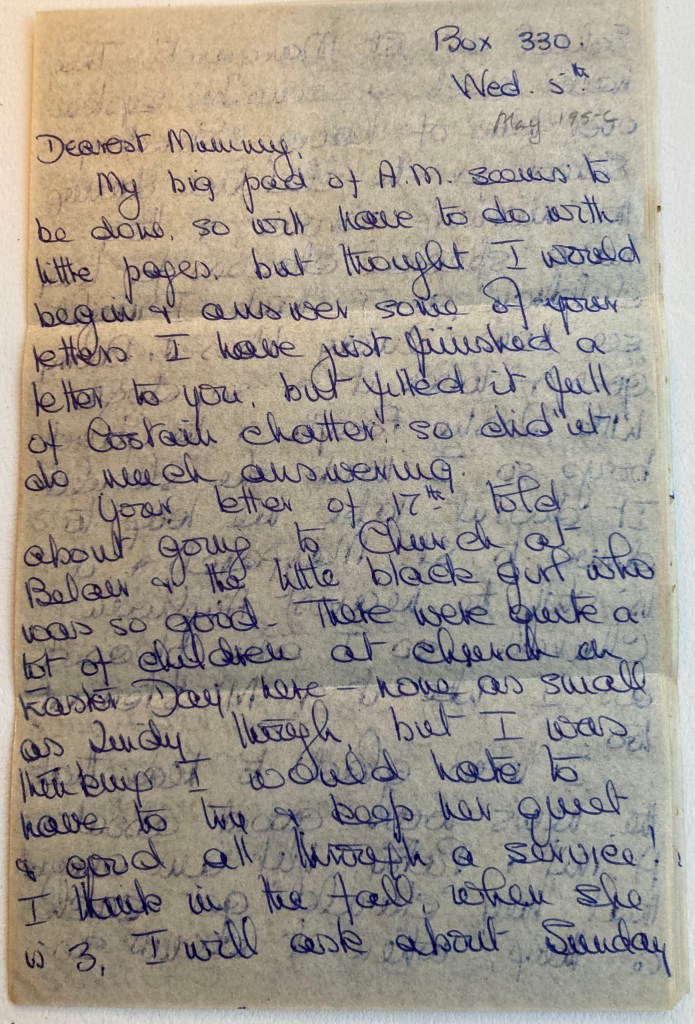 Box 330.
Wed. 5th
May 195
Dearest Mummy,
My big pad of A.M. seems to
be done, so will have to do with
little pages. but thought I would
begin & answer some of your
letters. I have just finished a
letter to you, but filled it full
of Costain chatter, so didn't
do much answering.
Your letter of 17th told
about going to Church at
& the little black girl who
was so good. There were quite a
lot of children at church on
Easter Day here – none as small
as though, but I was
thinking I would hate to
have to try & keep her quiet
& good all through a service!
I think in the fall, when she
is 3, I will ask about Sunday